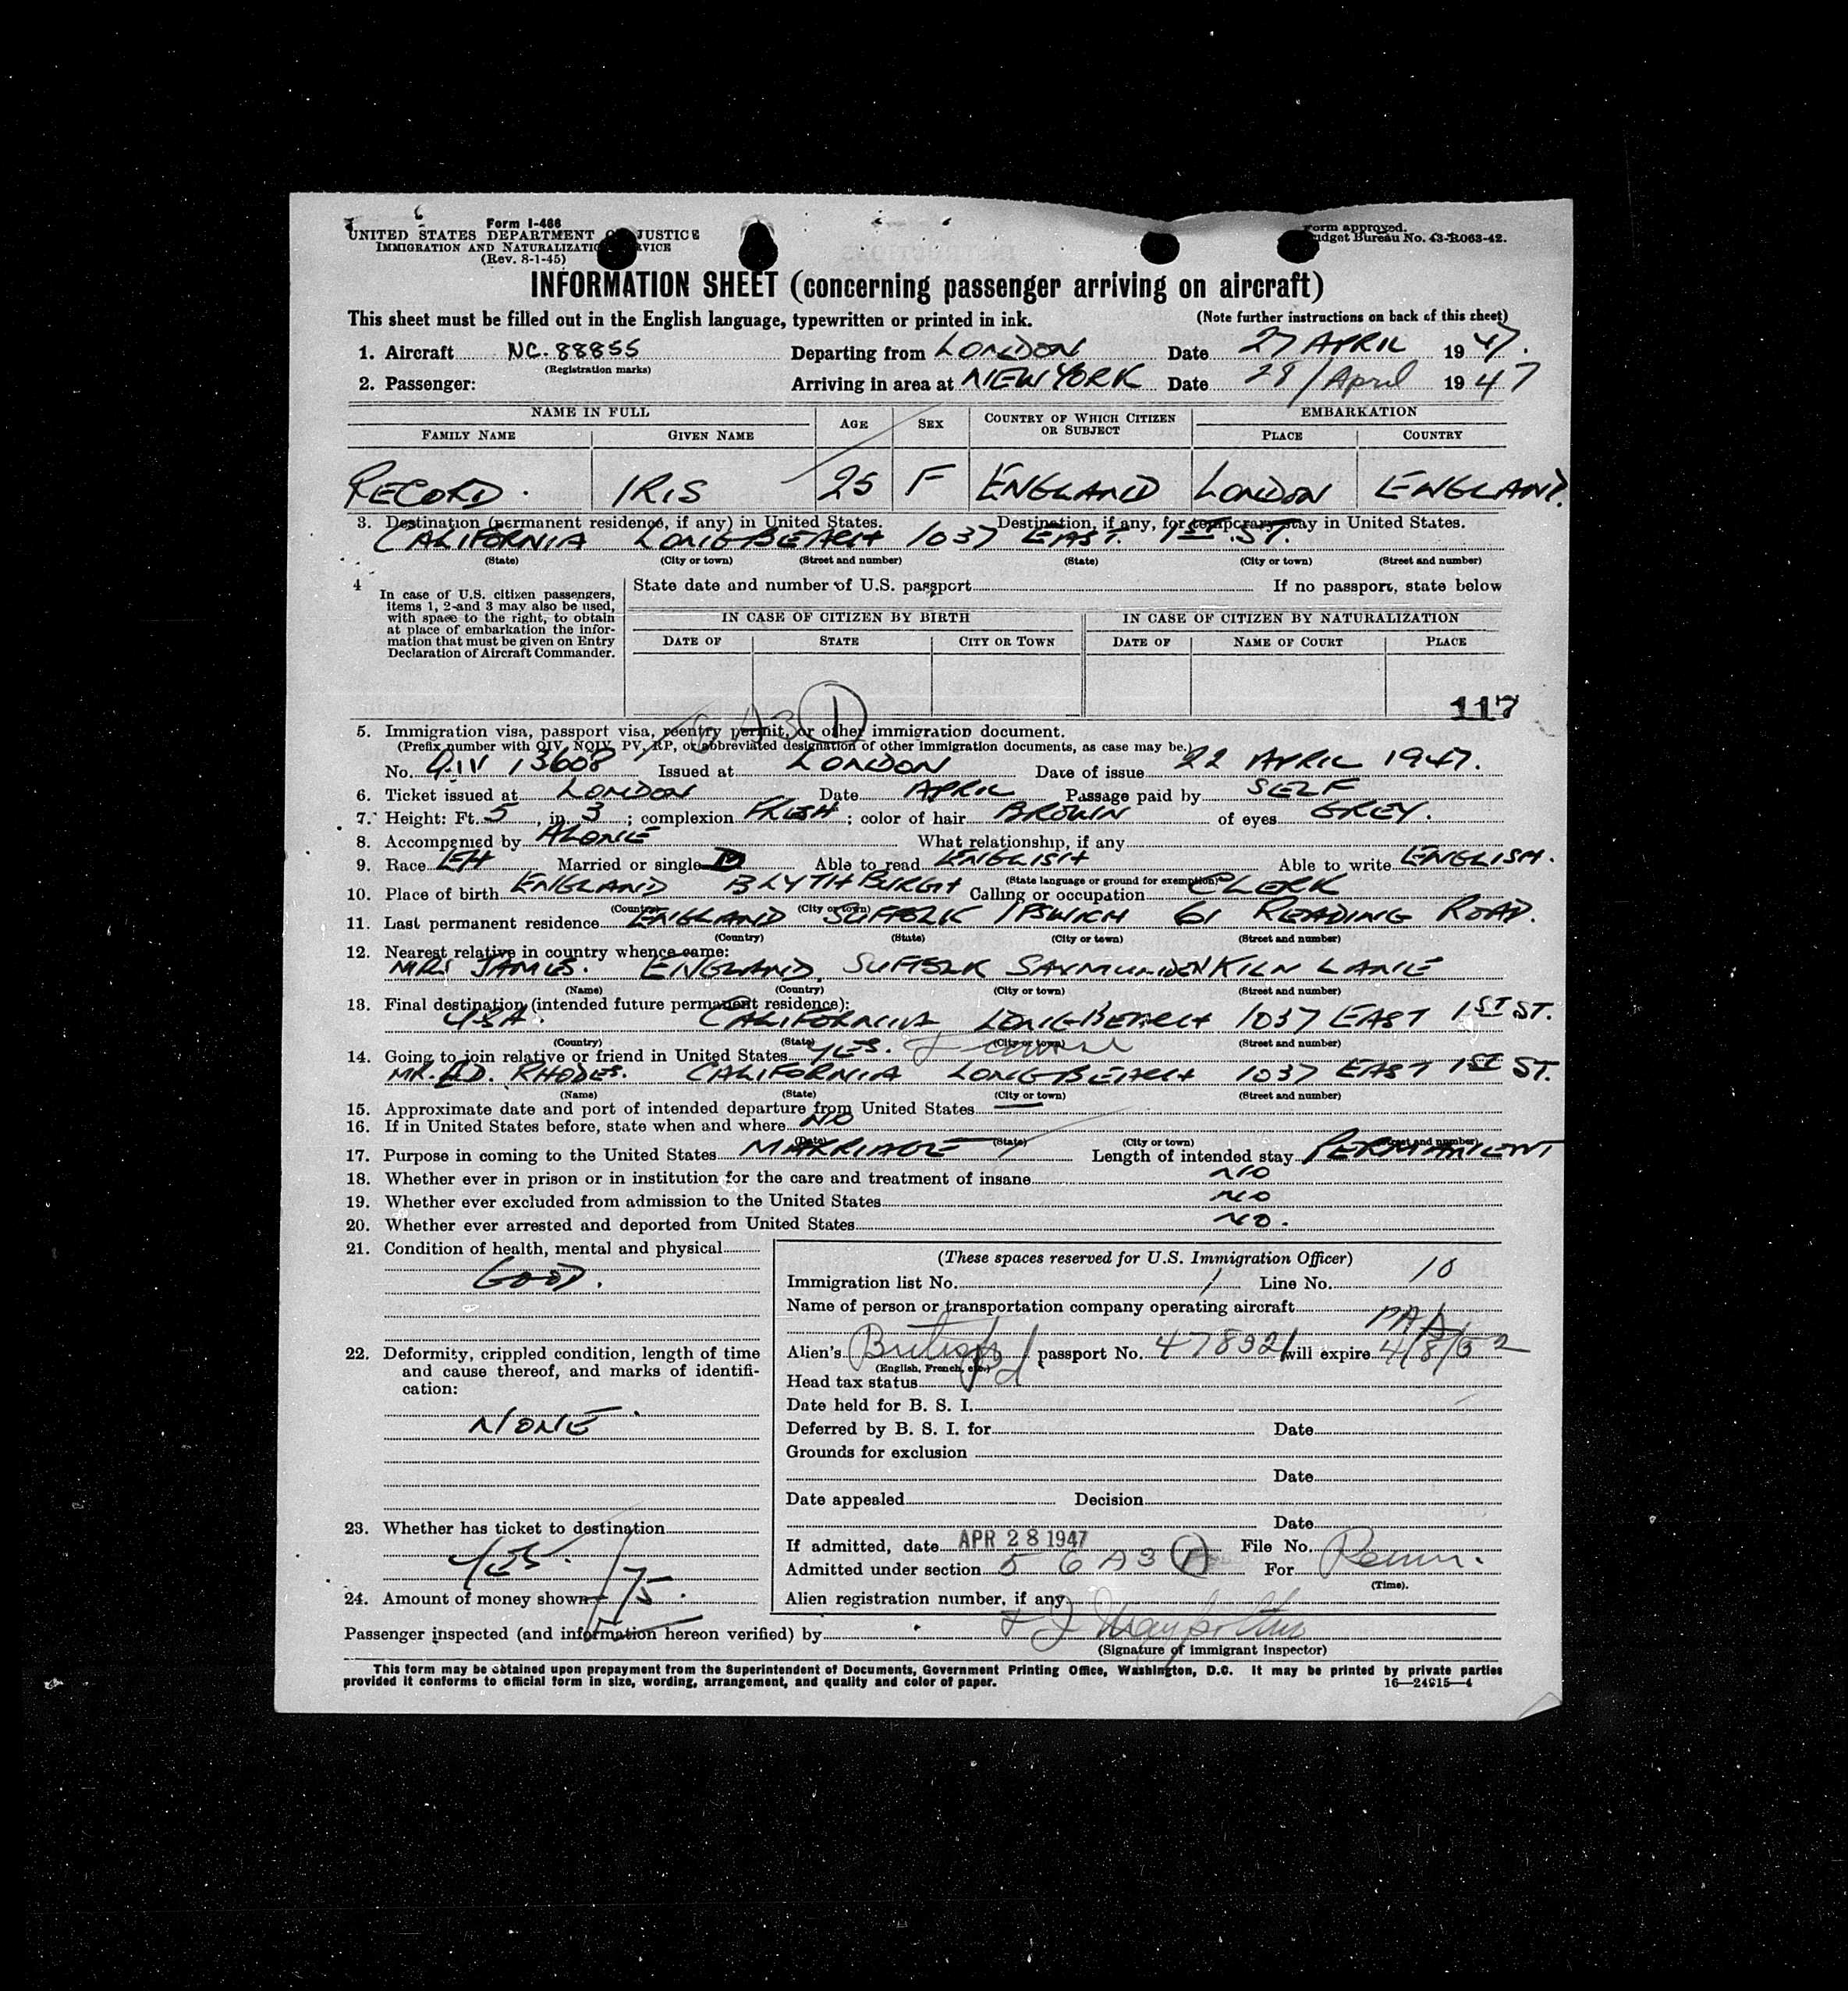 Form I-466
UNITED STATES DEPARTMENT OF JUSTICE
IMMIGRATION AND NATURALIZATION SERVICE
(Rev. 8-1-45)
Form approved.
Budget Bureau No. 43-R063-42.
INFORMATION SHEET (concerning passenger arriving on aircraft)
This sheet must be filled out in the English language, typewritten or printed in ink. (Note further instructions on back of this sheet)
1. Aircraft NC. 88855 Departing from LONDON Date 27 APRIL 1947.
(Registration marks)
2. Passenger: Arriving in area at NEW YORK Date 28/April 1947
NAME IN FULL AGE SEX COUNTRY OF WHICH CITIZEN OR SUBJECT EMBARKATION
FAMILY NAME GIVEN NAME PLACE COUNTRY
RECORD. IRIS 25 F ENGLAND LONDON ENGLAND.
3. Destination (permanent residence, if any) in United States. Destination, if any, for temporary stay in United States.
CALIFORNIA LONG BEACH 1037 EAST. 1ST ST.
(State) (City or town) (Street and number) (State) (City or town) (Street and number)
4 In case of U.S. citizen passengers, items 1, 2 and 3 may also be used, with space to the right, to obtain at place of embarkation the information that must be given on Entry Declaration of Aircraft Commander.
State date and number of U.S. passport If no passport, state below
IN CASE OF CITIZEN BY BIRTH IN CASE OF CITIZEN BY NATURALIZATION
DATE OF STATE CITY OR TOWN DATE OF NAME OF COURT PLACE
117
6 A3 1
5. Immigration visa, passport visa, reentry permit, or other immigration document.
(Prefix number with QIV, NQIV, PV, RP, or abbreviated designation of other immigration documents, as case may be.)
No. QIV 13608 Issued at LONDON Date of issue 22 APRIL 1947.
6. Ticket issued at LONDON Date APRIL Passage paid by SELF
7. Height: Ft. 5, in. 3; complexion FRESH; color of hair BROWN of eyes GREY.
8. Accompanied by ALONE What relationship, if any
9. Race EH Married or single D Able to read ENGLISH Able to write ENGLISH.
(State language or ground for exemption)
10. Place of birth ENGLAND BLYTHBURGH Calling or occupation CLERK
(Country) (City or town)
11. Last permanent residence ENGLAND SUFFOLK IPSWICH 61 READING ROAD.
(Country) (State) (City or town) (Street and number)
12. Nearest relative in country whence came:
MRS JAMES. ENGLAND. SUFFOLK SAXMUNDEN KILN LANE
(Name) (Country) (City or town) (Street and number)
13. Final destination (intended future permanent residence):
USA. CALIFORNIA LONG BEACH 1037 EAST 1ST ST.
(Country) (State) (City or town) (Street and number)
14. Going to join relative or friend in United States YES.
MR. ED. RHODES. CALIFORNIA LONG BEACH 1037 EAST 1ST ST.
(Name) (State) (City or town) (Street and number)
15. Approximate date and port of intended departure from United States —
16. If in United States before, state when and where NO
(Date) (State) (City or town) (Street and number)
17. Purpose in coming to the United States MARRIAGE Length of intended stay PERMANENT
18. Whether ever in prison or in institution for the care and treatment of insane NO
19. Whether ever excluded from admission to the United States NO
20. Whether ever arrested and deported from United States NO.
21. Condition of health, mental and physical
GOOD.
22. Deformity, crippled condition, length of time and cause thereof, and marks of identification:
NONE.
23. Whether has ticket to destination
YES.
24. Amount of money shown 75.
(These spaces reserved for U.S. Immigration Officer)
Immigration list No. 1 Line No. 10
Name of person or transportation company operating aircraft
PAA
Alien's British passport No. 478321 will expire 4/8/52
(English, French, etc.)
Head tax status Pd
Date held for B. S. I.
Deferred by B. S. I. for Date
Grounds for exclusion
Date
Date appealed Decision
Date
If admitted, date APR 28 1947 File No.
Admitted under section 5 6 A3 1 For
(Time).
Alien registration number, if any
Passenger inspected (and information hereon verified) by
(Signature of immigrant inspector)
This form may be obtained upon prepayment from the Superintendent of Documents, Government Printing Office, Washington, D.C. It may be printed by private parties
provided it conforms to official form in size, wording, arrangement, and quality and color of paper. 16—24915—4